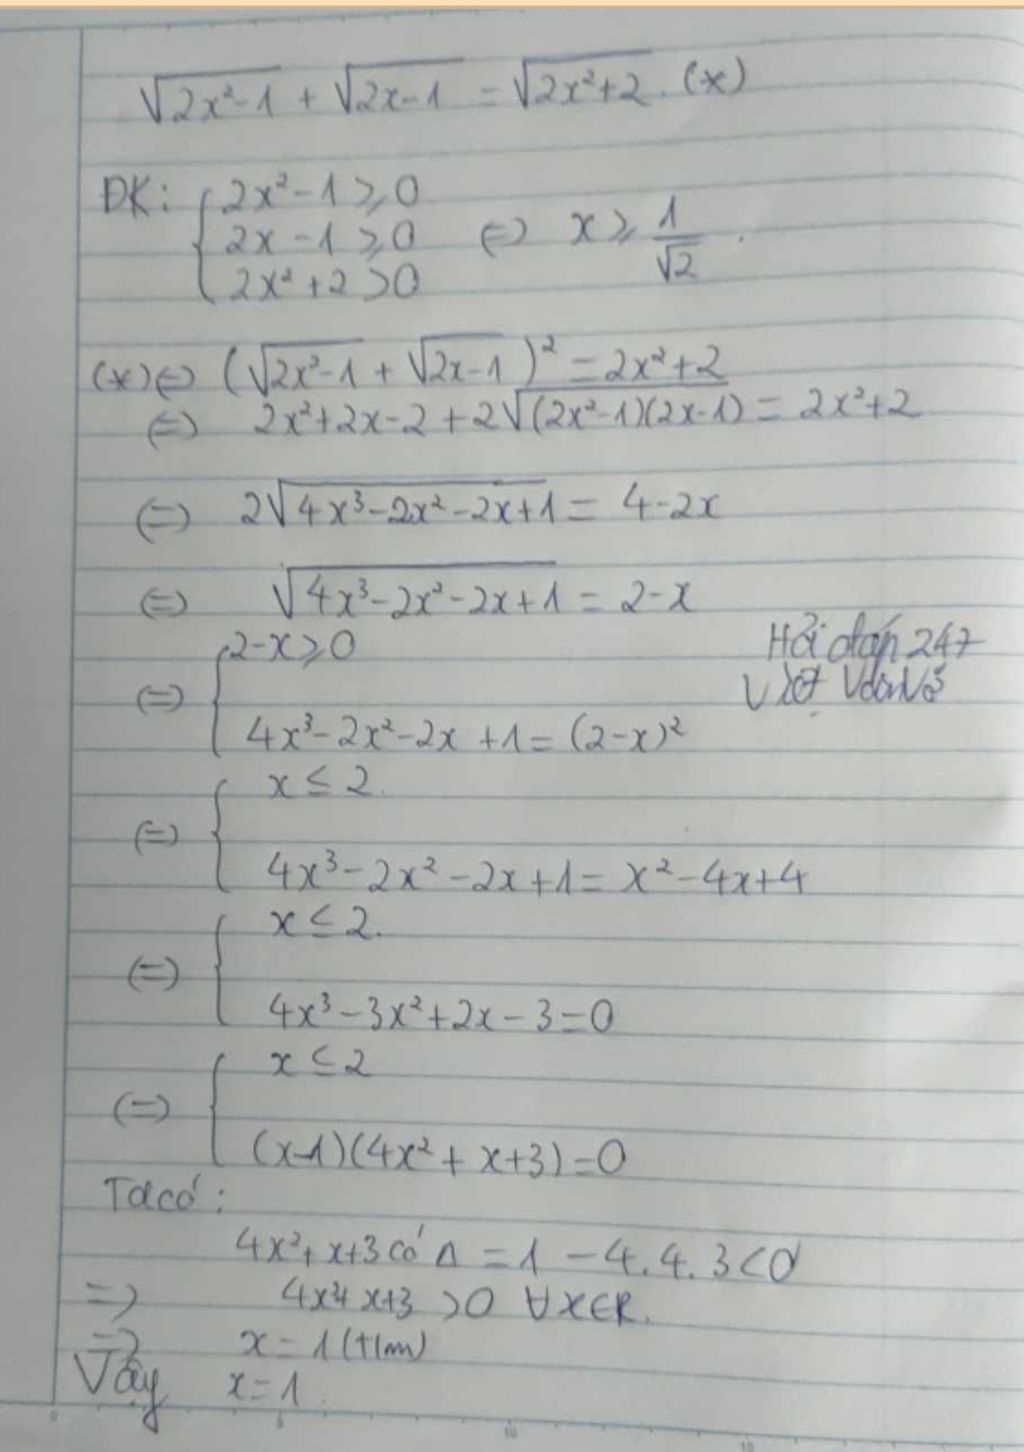 √(2x²-1) + √(2x-1) = √(2x²+2). (*)
ĐK: { 2x²-1 ⩾ 0
2x-1 ⩾ 0 ⇔ x ⩾ 1/√2.
2x²+2 > 0
(*) ⇔ (√(2x²-1) + √(2x-1))² = 2x²+2
⇔ 2x²+2x-2+2√((2x²-1)(2x-1)) = 2x²+2
⇔ 2√(4x³-2x²-2x+1) = 4-2x
⇔ √(4x³-2x²-2x+1) = 2-x
Hỏi đáp 247
⇔ { 2-x ⩾ 0
4x³-2x²-2x+1 = (2-x)²
⇔ { x ≤ 2.
4x³-2x²-2x+1 = x²-4x+4
⇔ { x ≤ 2.
4x³-3x²+2x-3=0
⇔ { x ≤ 2
(x-1)(4x²+x+3)=0
Ta có:
4x²+x+3 có Δ = 1 - 4.4.3<0
⇒ 4x²+x+3 >0 ∀x∈R.
⇒ x=1 (t/m)
Vậy x=1.
0 5 10 15